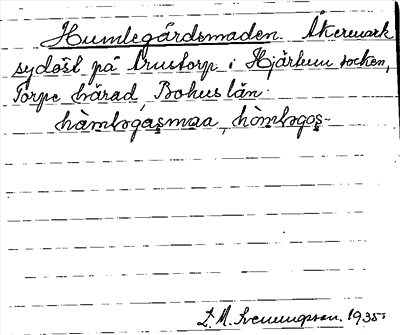 Humlegårdsmaden. Åkermark
sydöst på Prustorp i Hjärtum socken,
Torpe härad, Bohus län.
hòmlogasmaa, hòmlogos-
L. M. Svenungsson. 1935.